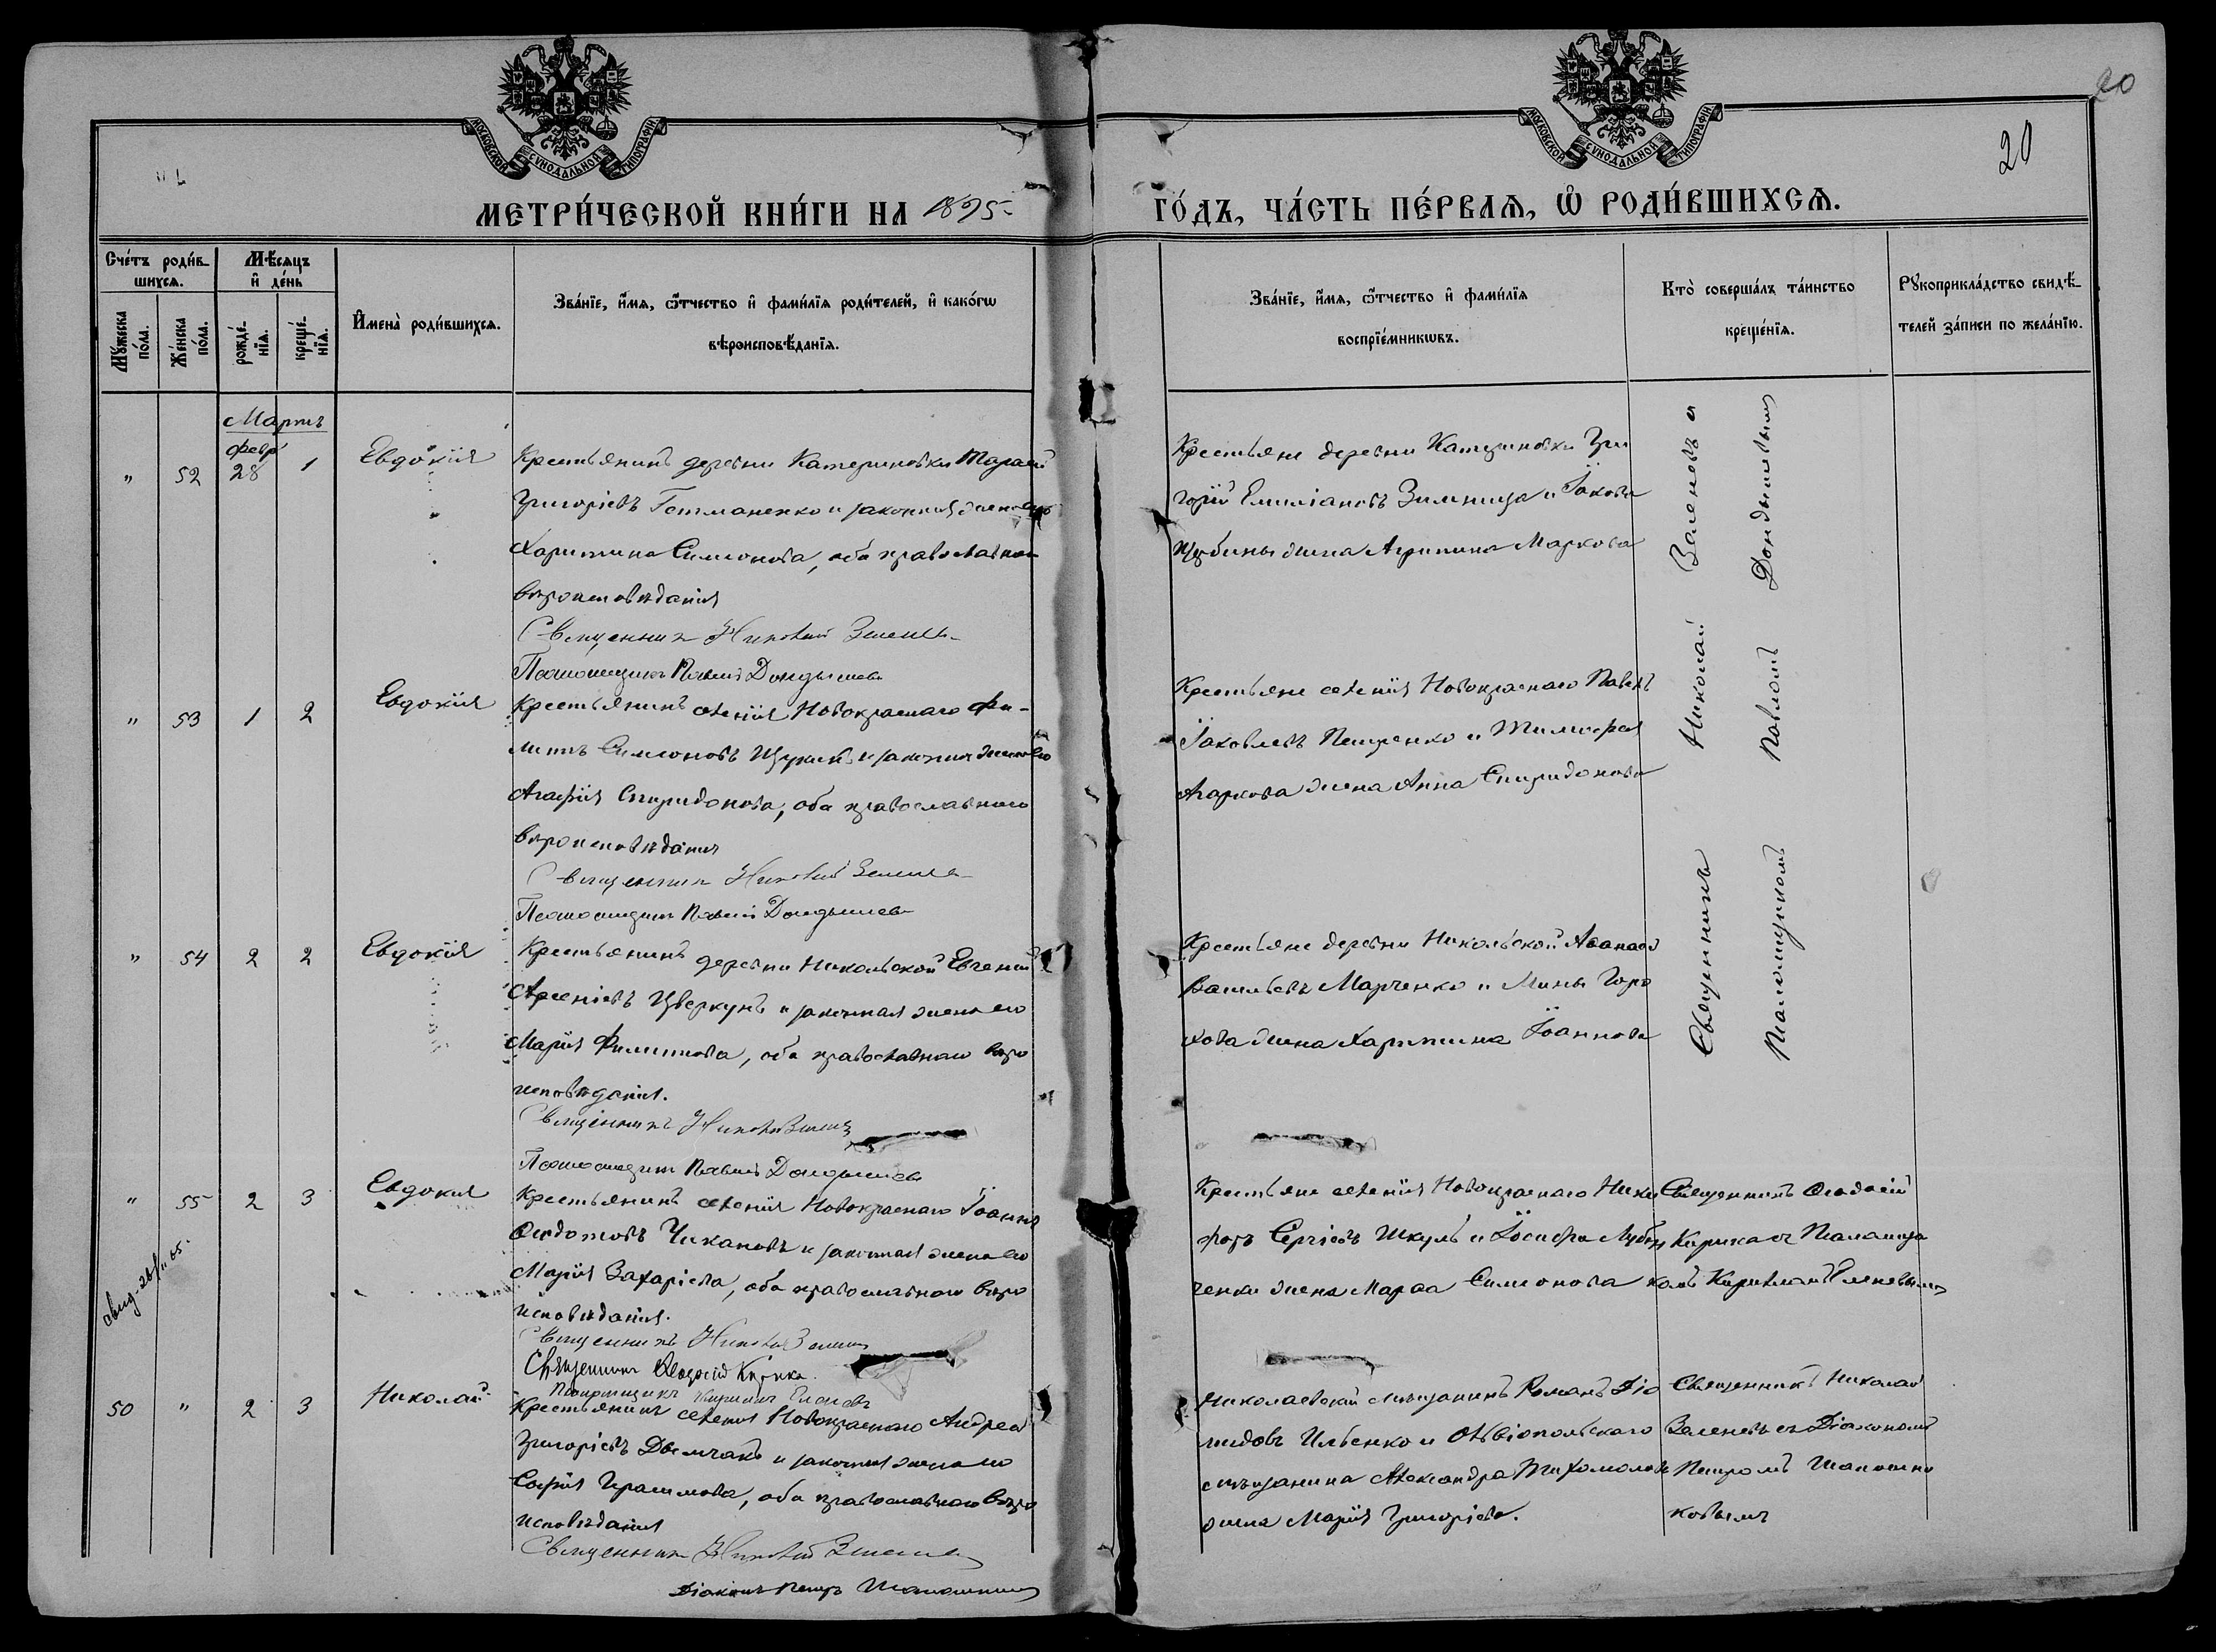 МОСКОВСКОЙ СѴНОДАЛЬНОЙ ТИПОГРАФІИ
МОСКОВСКОЙ СѴНОДАЛЬНОЙ ТИПОГРАФІИ
20
20
МЕТРИ́ЧЕСКОЙ КНИ́ГИ НА 1895
ГО́ДЪ, ЧА́СТЬ ПЕ́РВАѦ, Ѡ҆ РОДИ́ВШИХСѦ.
Сче́тъ роди́в-
шихсѧ.
Мѣ́сѧцъ
и҆ де́нь
Мꙋ́жеска
по́ла.
Же́нска
по́ла.
рожде́-
нїѧ.
креще́-
нїѧ.
И҆мена̀ роди́вшихсѧ.
Зва́нїе, и҆́мѧ, ѻ҆́тчество и҆ фами́лїѧ роди́телей, и҆ како́гѡ
вѣроисповѣ́данїѧ.
Зва́нїе, и҆́мѧ, ѻ҆́тчество и҆ фами́лїѧ
воспрїе́мникѡвъ.
Кто̀ соверша́лъ та́инство
креще́нїѧ.
Рꙋкоприкла́дство свидѣ́-
телей за́писи по жела́нїю.
Мартъ
февр
" 52 28 1 Евдокія
Крестьянинъ деревни Катериновки Тарасій
Григоріевъ Гетманенко и законная жена его
Харитина Симеонова, оба православнаго
вѣроисповѣданія
Священник Николай Зеленев
Псаломщик Павел Дондышев
Крестьяне деревни Катериновки Гри
горій Емиліановъ Зимница и Іакова
жена Агрипина Маркова
Священникъ Николай Зеленевъ и
Псаломщикомъ Павломъ Дондышевым
" 53 1 2 Евдокія
Крестьянинъ селенія Новокраснаго Фи-
липпъ Симеоновъ Щукинъ и законная жена его
Агафія Спиридонова, оба православнаго
вѣроисповѣданія
Священник Николай Зеленев
Псаломщик Павел Дондышев
Крестьяне селенія Новокраснаго Павелъ
Іаковлевъ Пещенко и Тимофея
Агаркова жена Анна Спиридонова
" 54 2 2 Евдокія
Крестьянинъ деревни Никольской Евгеній
Арсеніевъ Цверкунъ и законная жена его
Марія Филиппова, оба православнаго вѣро
исповѣданія.
Священникъ Николай Зеленев
Псаломщик Павел Дондышев
Крестьяне деревни Никольской Аѳанасій
Васильевъ Марченко и Мины Горо
хова жена Харитина Іоаннова
" 55 2 3 Евдокия
Крестьянинъ селенія Новокраснаго Іоаннъ
Ѳеодотовъ Чикановъ и законная жена его
Марія Захаріева, оба православнаго вѣро
исповѣданія.
Священникъ Николай Зеленев
Священникъ Ѳеодосій Кирика.
Псаломщикъ Кириллъ Еленевъ
Крестьяне селенія Новокраснаго Ники
форъ Сергіевъ Шкуль и Іосифа
ченка жена Марѳа Симеонова
Священникъ Ѳеодосій
Кирика съ Псаломщи
комъ Кирилломъ Еленевымъ
50 " 2 3 Николай
Крестьянинъ селенія Новокраснаго Андрей
Григоріевъ и законная жена его
Софія Герасимова, оба православнаго вѣро
исповѣданія
Священник Николай Зеленев
Діаконъ Петръ Шапошников
Николаевскій мѣщанинъ Романъ Діо
мидовъ Ильенко и Ольвіопольскаго
мѣщанина Александра Тихомолова
жена Марія Григоріева.
Священникъ Николай
Зеленевъ съ Діакономъ
Петромъ Шапошни
ковымъ